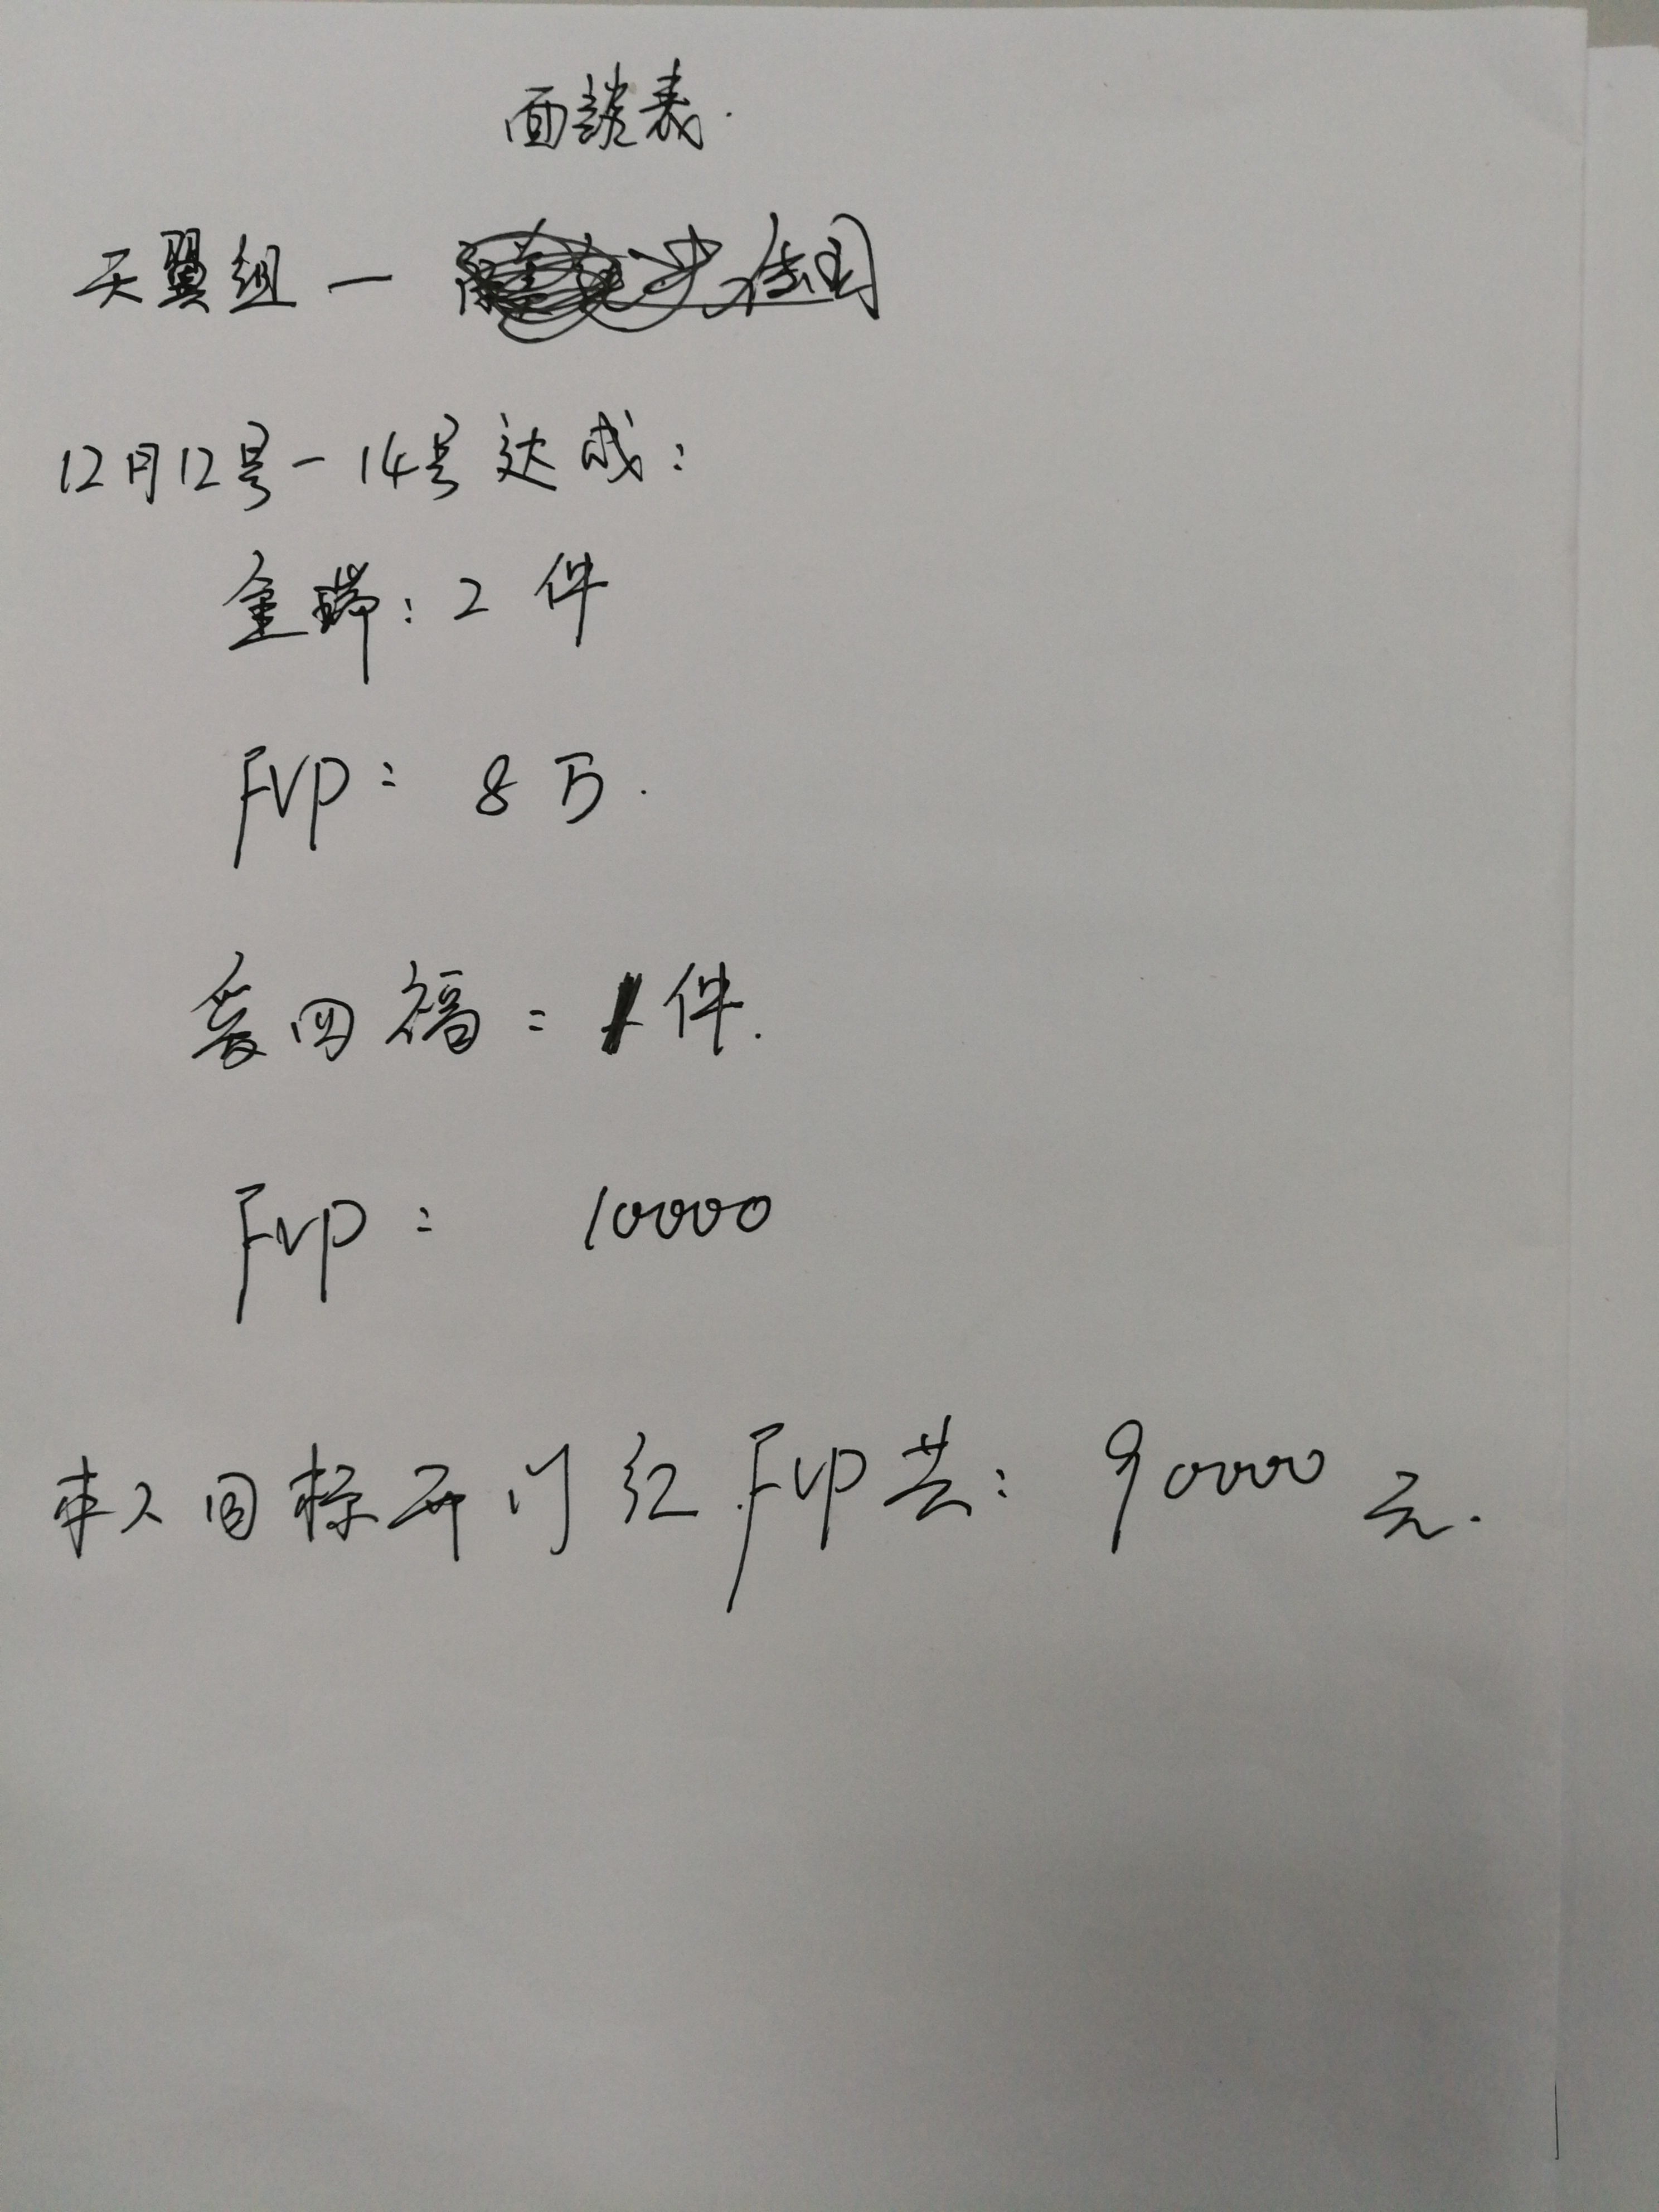 面谈表.
天翼组一
12月12号-14号达成:
金瑞:2件
FVP:8万.
爱四福:1件.
FVP: 10000
本人目标开门红FVP共:90000元.